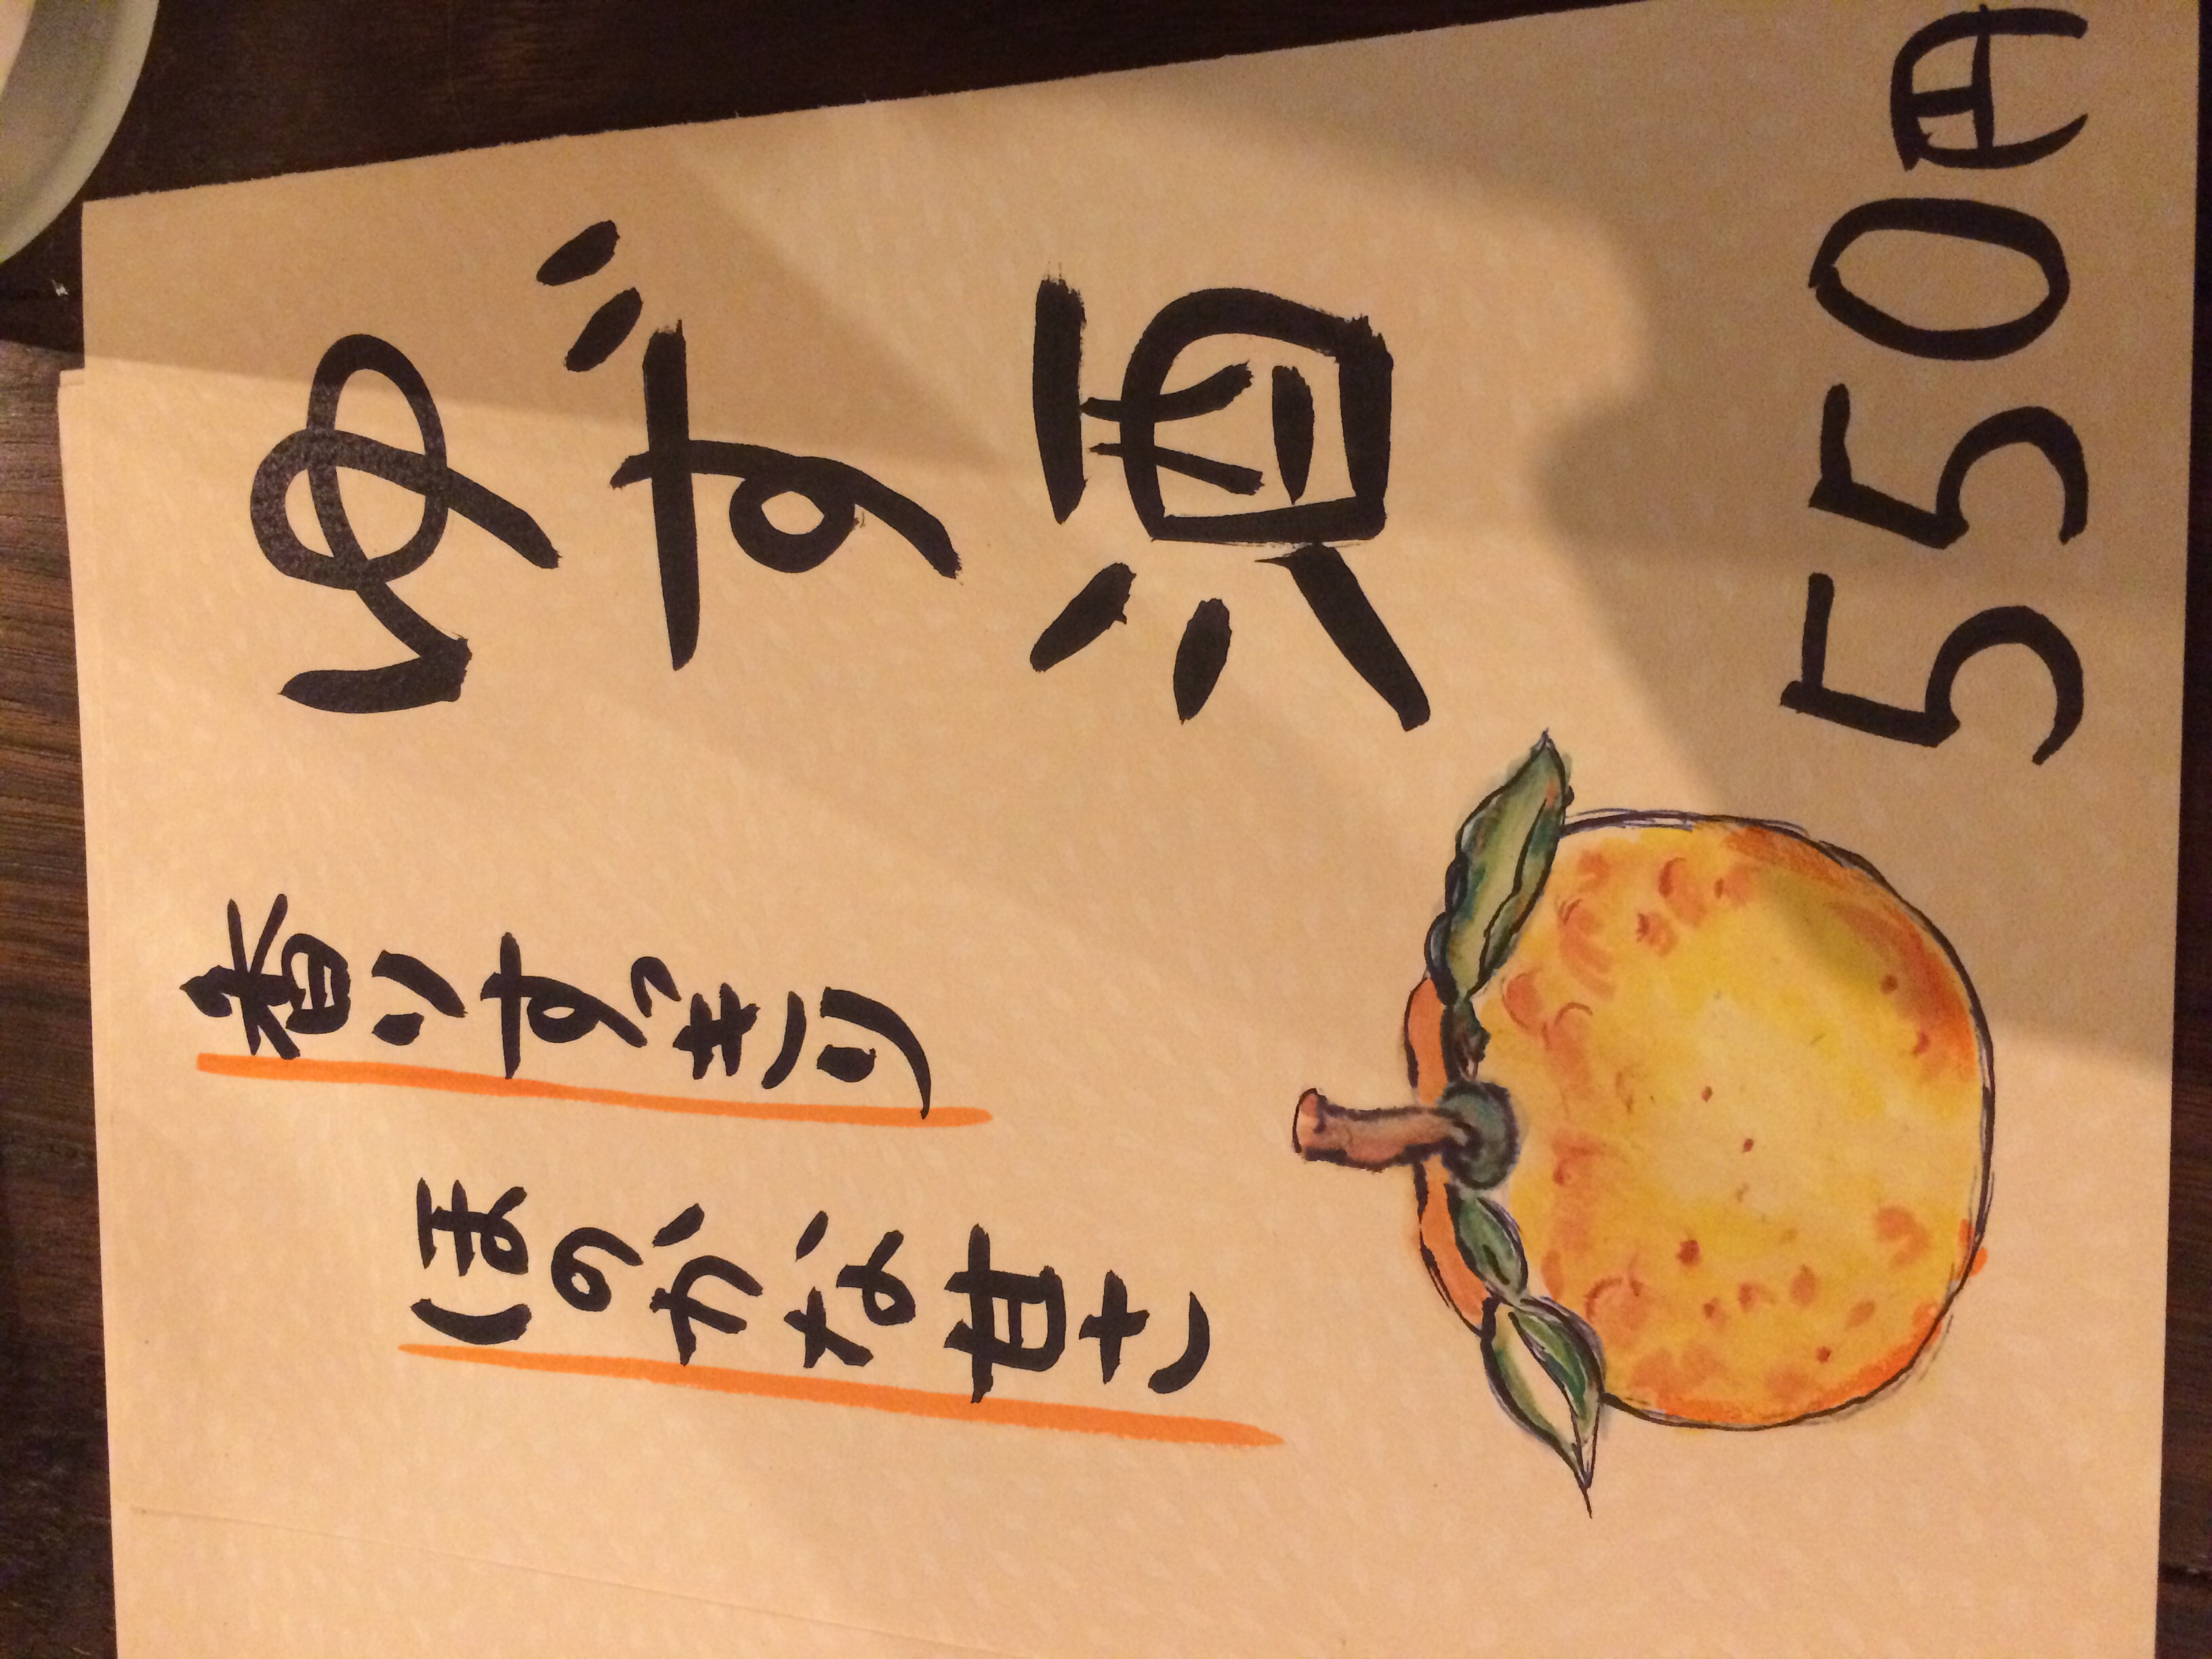 ゆず酒
550円
香りすっきり
ほのかな甘さ